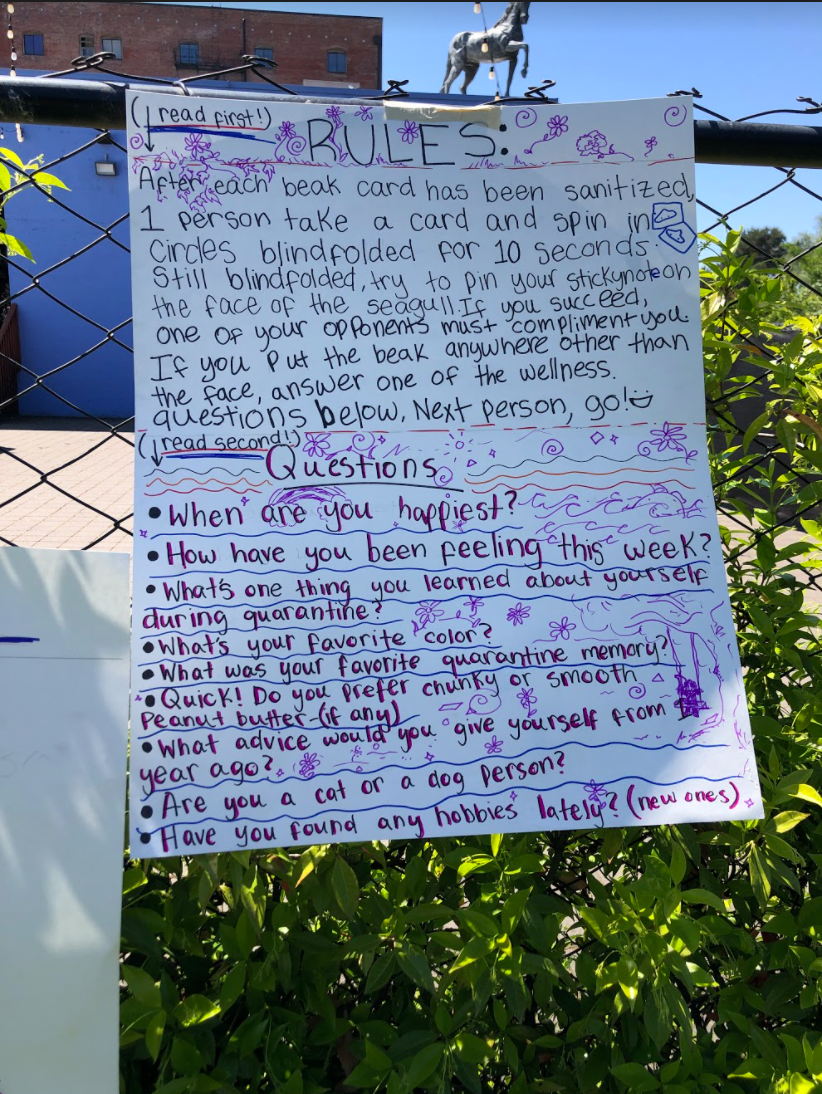 (read first!)
RULES:
After each beak card has been sanitized,
1 person take a card and spin in
circles blindfolded for 10 seconds.
Still blindfolded, try to pin your stickynote on
the face of the seagull. If you succeed,
one of your opponents must compliment you
If you put the beak anywhere other than
the face, answer one of the wellness.
questions below. Next person, go!
(read second!)
Questions
• When are you happiest?
• How have you been feeling this week?
• What's one thing you learned about yourself
during quarantine?
• What's your favorite color?
• What was your favorite quarantine memory?
• Quick! Do you prefer chunky or smooth
Peanut butter (if any)
• What advice would you give yourself from 1
year ago?
• Are you a cat or a dog person?
• Have you found any hobbies lately? (new ones)